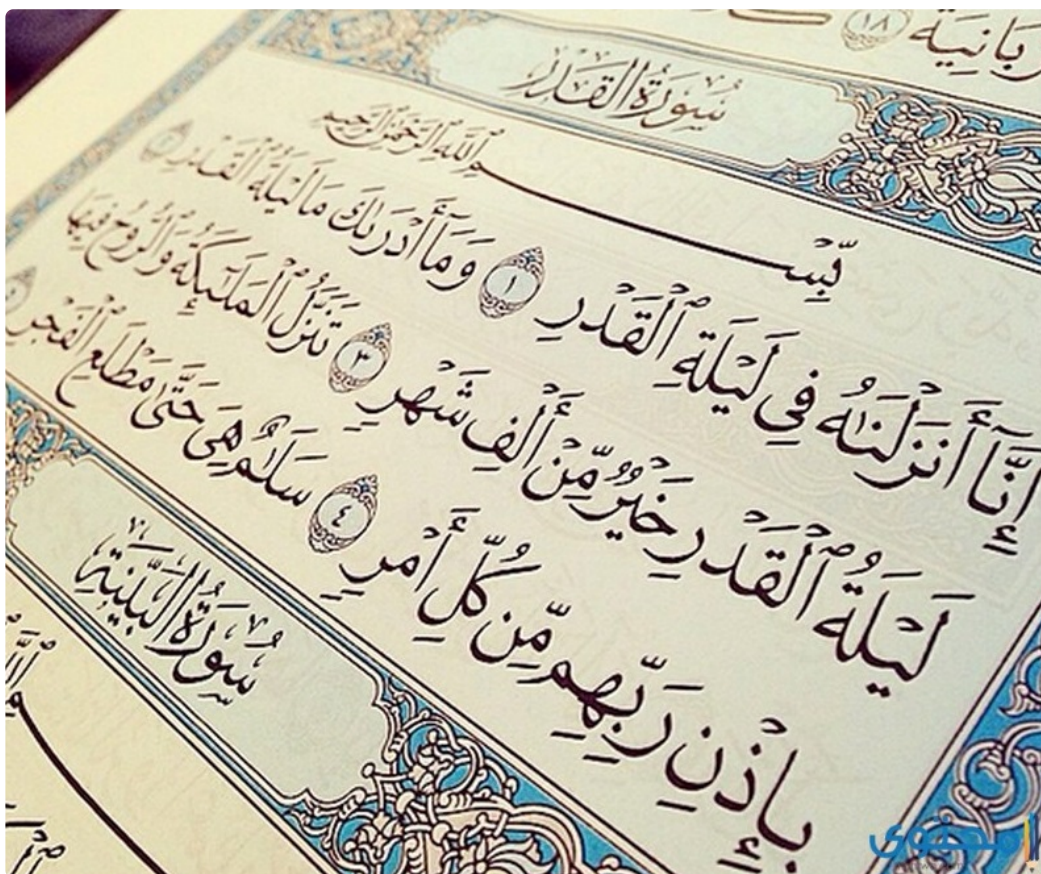 ١٨
سُورَةُ القَدْرِ
بِسْمِ ٱللَّهِ ٱلرَّحْمَٰنِ ٱلرَّحِيمِ
إِنَّآ أَنزَلْنَٰهُ فِى لَيْلَةِ ٱلْقَدْرِ ١ وَمَآ أَدْرَىٰكَ مَا لَيْلَةُ ٱلْقَدْرِ ٢
لَيْلَةُ ٱلْقَدْرِ خَيْرٌ مِّنْ أَلْفِ شَهْرٍ ٣ تَنَزَّلُ ٱلْمَلَٰٓئِكَةُ وَٱلرُّوحُ فِيهَا
بِإِذْنِ رَبِّهِم مِّن كُلِّ أَمْرٍ ٤ سَلَٰمٌ هِىَ حَتَّىٰ مَطْلَعِ ٱلْفَجْرِ
سُورَةُ البَيِّنَةِ
محتوى